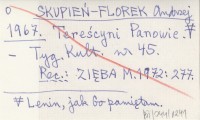 o SKUPIEŃ-FLOREK Andrzej.
1967. Tereścyni Panowie.*
- Tyg. Kult. nr 45.
Rec.: ZIĘBA M. 1972: 277.
* Lenin, jak Go pamiętam.